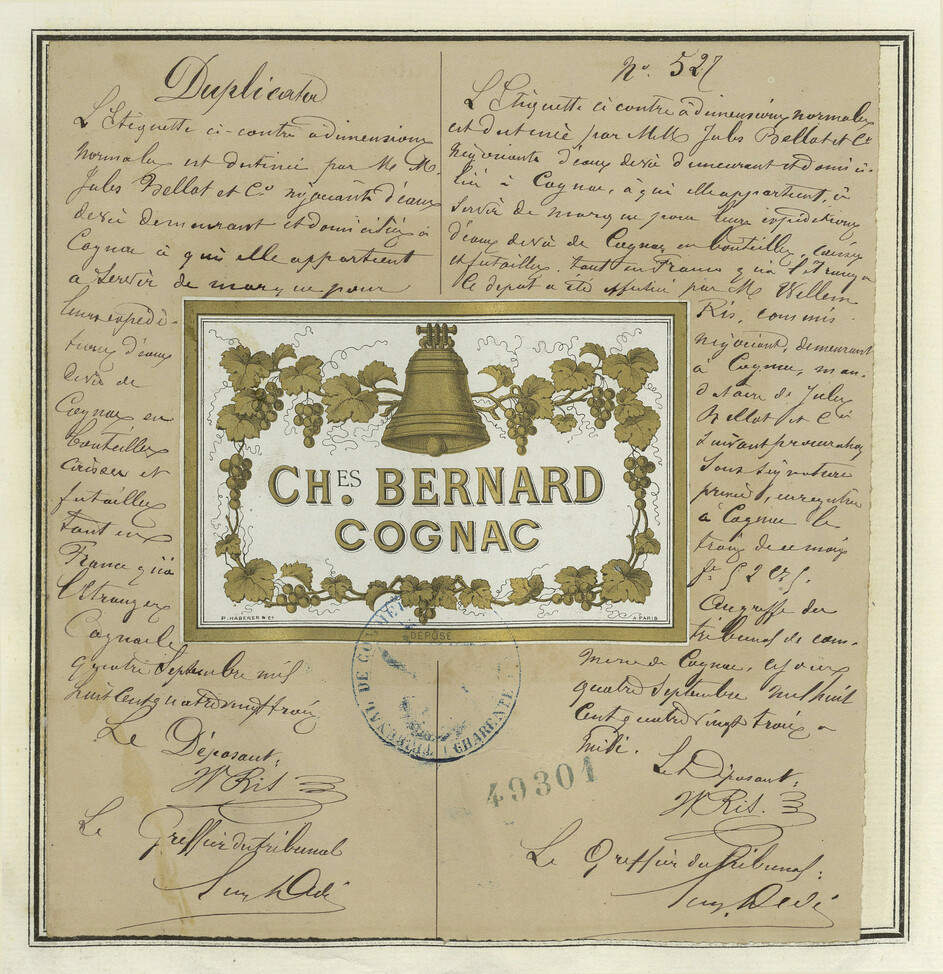 Duplicata
L'Etiquette ci-contre à dimensions
normales est destinée par Ms. M.
Jules Bellot et Co négociants d'eaux
devie demeurant et domiciliés à
Cognac à qui elle appartient
a servir de marque pour
leurs expédi-
tions d'eaux
devie de
Cognac en
bouteilles
caisses et
futailles
tant en
France qu'à
l'Etranger
Cognac le
quatre Septembre mil
huit cent quatre vingt trois
Le Déposant,
W Ris
Le Greffier du tribunal
No. 527
L'Etiquette ci contre à dimensions normales
est destinée par M.M. Jules Bellot et Ce
négociants d'eaux devie demeurant et domici-
liés à Cognac, à qui elle appartient, à
servir de marque pour leurs expéditions
d'eaux devie de Cognac en bouteilles, caisses
et futailles, tant en France qu'à l'Etranger
le dépôt a été effectué par M. Willem
Ris, commis
négociant, demeurant
à Cognac, man-
dataire de Jules
Bellot et Cie
suivant procuration
sous signature
privée, enregistrée
à Cognac le
trois de ce mois
Au greffe du
tribunal de com-
merce de Cognac, ce jour
quatre Septembre mil huit
cent quatre vingt trois, a
midi.
Le Déposant,
W Ris.
Le Greffier du Tribunal:
CHES. BERNARD
COGNAC
P. HABERER & Cie
A PARIS
DÉPOSÉ
TRIBUNAL DE COMMERCE
CHARENTE
49301